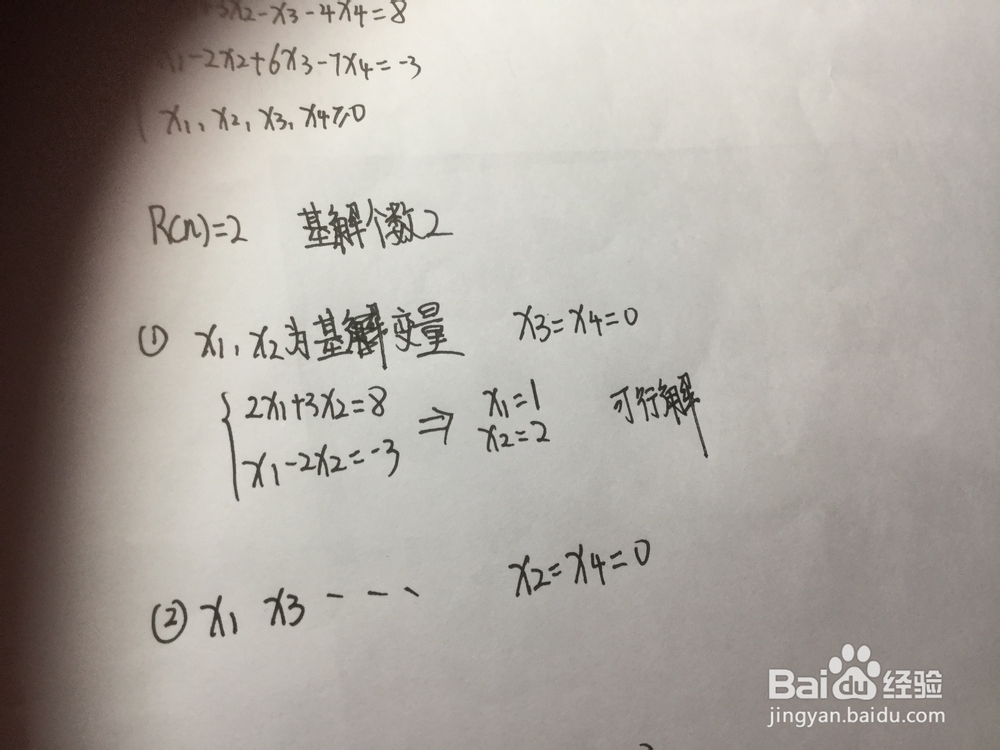 3x2-x3-4x4=8
x1-2x2+6x3-7x4=-3
x1, x2, x3, x4≥0
R(n)=2 基解个数2
① x1, x2为基解变量 x3=x4=0
2x1+3x2=8
x1-2x2=-3
⇒ x1=1
x2=2
可行解
② x1 x3 - - 、 x2=x4=0
Baidu经验
jingyan.baidu.com